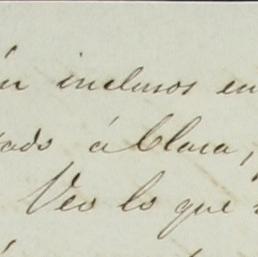 inclusos en
á Clara,
Veo lo que